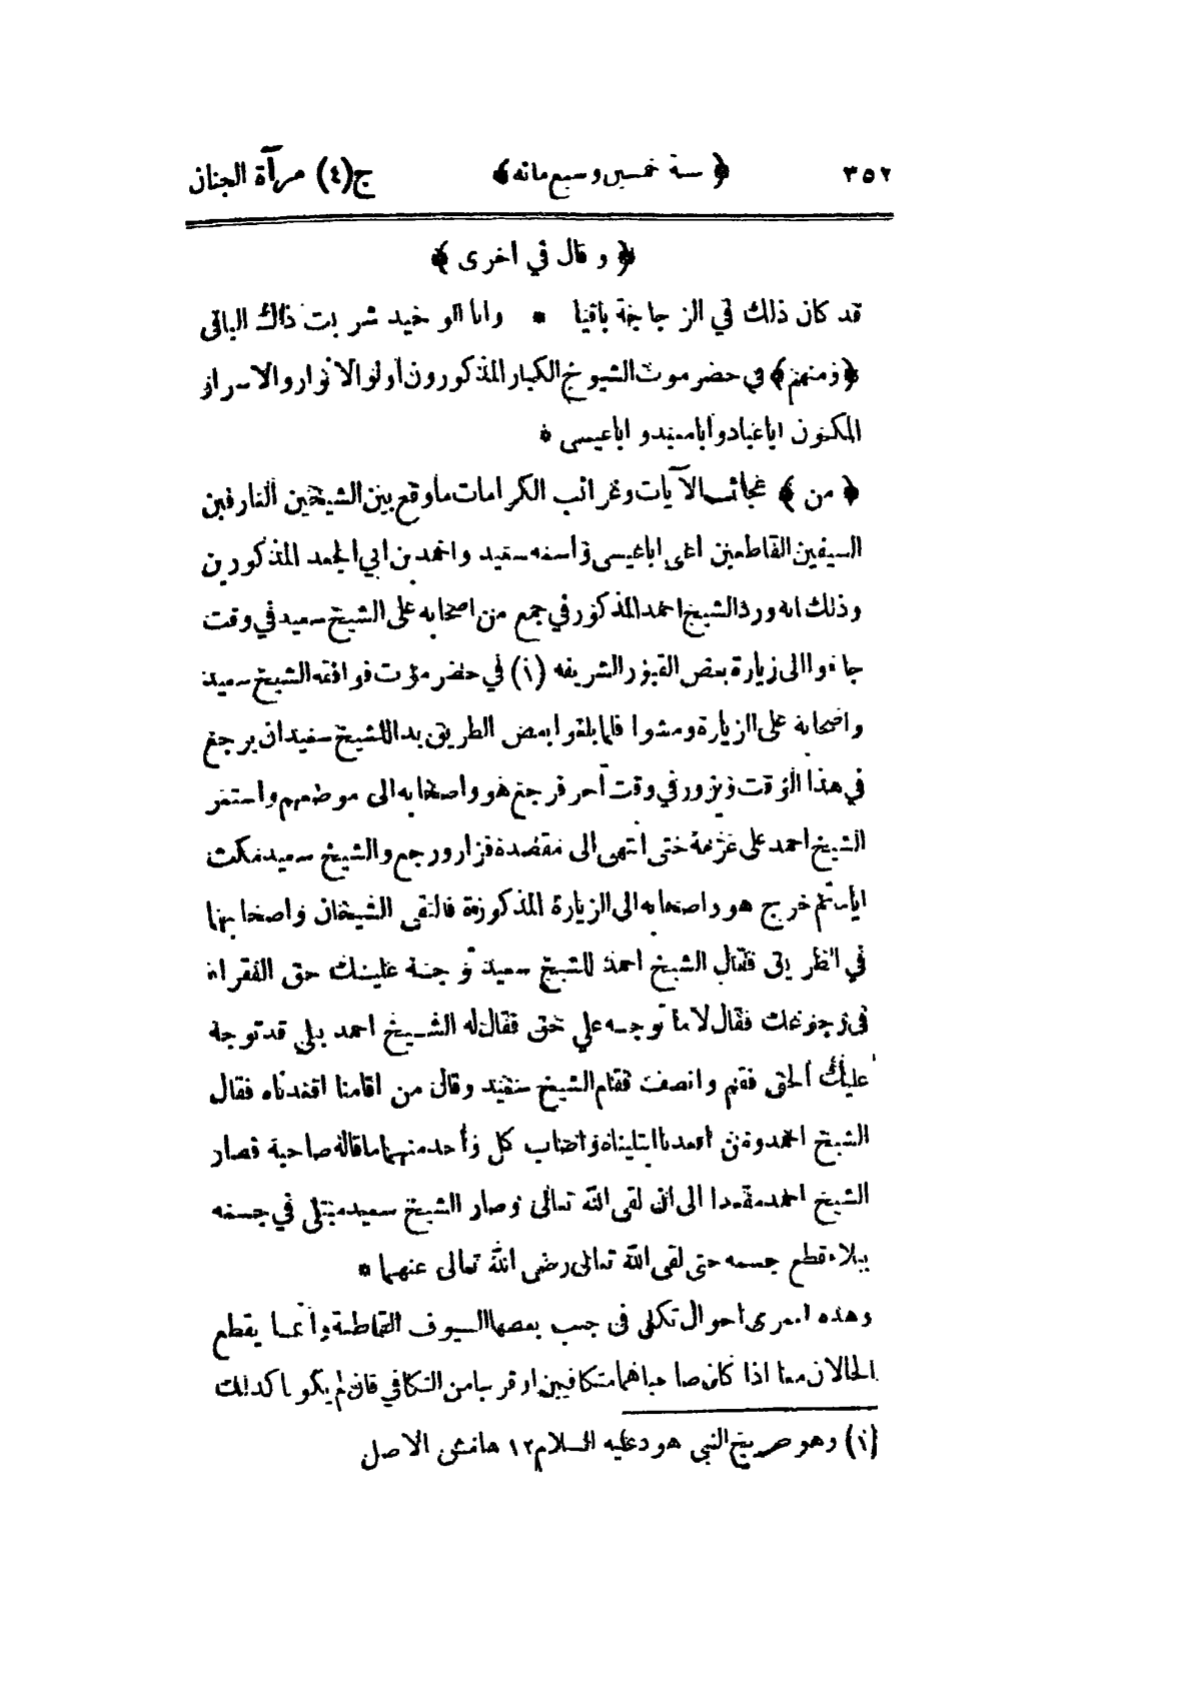 ٣٥٢ ﴿ سنة خمسين وسبع مائة ﴾ ج(٤) مرآة الجنان
﴿ و قال في اخرى ﴾
قد كان ذلك في الزجاجة باقيا * وانا الوحيد شربت ذاك الباقي
﴿ومنهم﴾ في حضر موت الشيوخ الكبار المذكورون أولو الانوار والاسرار
المكنون اباعباد وأبامعبد و اباعيسى *
﴿ من ﴾ عجائب الآيات وغرائب الكرامات ماوقع بين الشيخين العارفين
السيفين القاطعين اعنى اباعيسى واسمه سعيد واحمد بن ابي الجعد المذكورين
وذلك انه ورد الشيخ احمد المذكور في جمع من اصحابه على الشيخ سعيد في وقت
جاءوا الى زيارة بعض القبور الشريفه (١) في حضر موت فوافقه الشيخ سعيد
واصحابه على الزيارة ومشوا فلما بلغوا بعض الطريق بدا للشيخ سعيد ان يرجع
في هذا الوقت ويزور في وقت آخر فرجع هو واصحابه الى موضعهم واستمر
الشيخ احمد على عزمه حتى انتهى الى مقصده فزار ورجع والشيخ سعيد مكث
اياما ثم خرج هو واصحابه الى الزيارة المذكورة فالتقى الشيخان واصحابهما
في الطريق فقال الشيخ احمد للشيخ سعيد توجه عليك حق الفقراء
في رجوعك فقال لا ما توجه علي حق فقال له الشيخ احمد بلى قد توجه
عليك الحق فقم وانصف فقام الشيخ سعيد وقال من اقامنا اقعدناه فقال
الشيخ احمد ومن اقعدنا ابتليناه واصاب كل وأحد منهما ماقاله صاحبه فصار
الشيخ احمد مقعدا الى ان لقى الله تعالى وصار الشيخ سعيد مبتلى في جسمه
ببلاء قطع جسمه حتى لقى الله تعالى رضى الله تعالى عنهما *
وهذه لعمرى احوال تكل فى جنب بعضها السيوف القاطعة وانما يقطع
الحالان معا اذا كان صاحباهما متكافيين او قريبا من التكافي فان لم يكونا كذلك
(١) وهو ضريح النبى هود عليه السلام ١٢ هامش الاصل